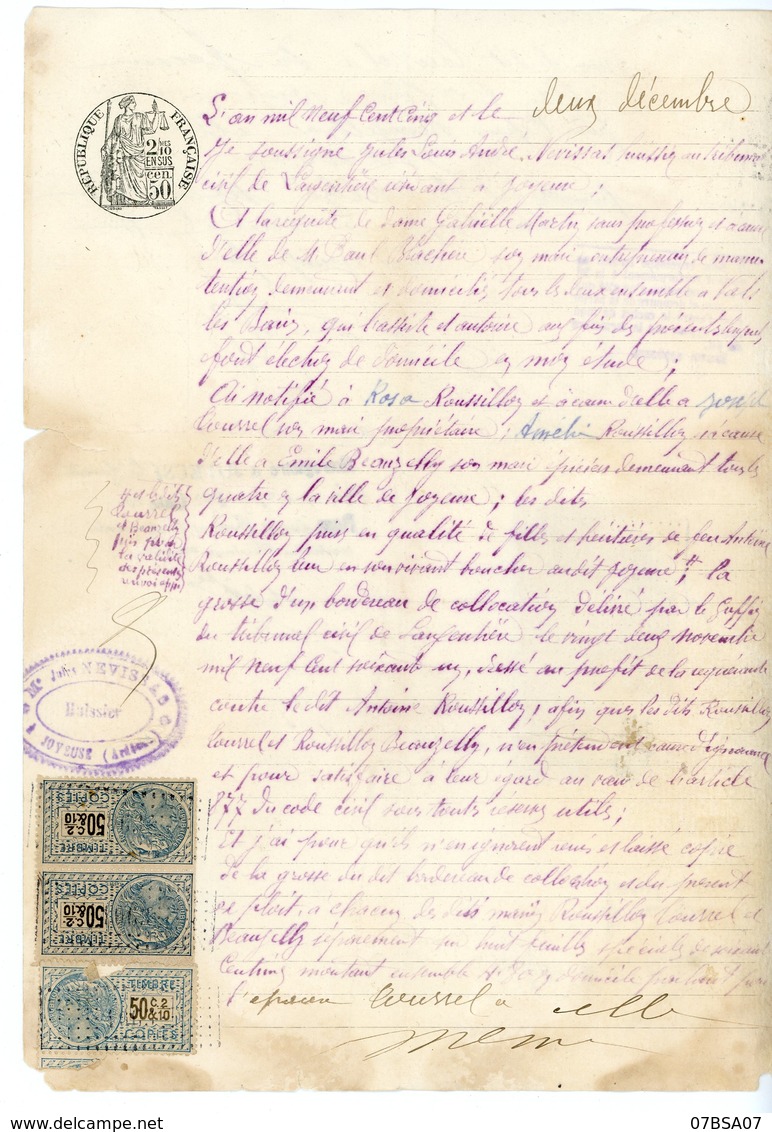 RÉPUBLIQUE FRANÇAISE
2/10 EN SUS
50 cen
L'an mil neuf cent cinq et le deux décembre
Je soussigné Jules Louis André Nevissas huissier au tribunal
civil de Largentière résidant à Joyeuse ;
A la requête de dame Gabrielle Martin sans profession et à cause
d'elle de M Paul Blachère son mari entrepreneur de manu
tention demeurant et domiciliés tous les deux ensemble à Vals
les Bains, qui l'assiste et autorise aux fins des présentes lesquels
font élection de domicile en mon étude ;
Ai notifié à Rosa Roussillon et à cause d'elle à
Courrel son mari propriétaire ; Amélie Roussillon et à cause
d'elle à Emile Beauzelly son mari épicier demeurant tous les
quatre en la ville de Joyeuse ; les dits
Roussillon pris en qualité de filles et héritières de feu Antoine
Roussillon en son vivant boucher audit Joyeuse ; la
grosse d'un bordereau de collocation délivré par le Greffier
du tribunal civil de Largentière le vingt deux novembre
mil neuf cent au profit de la requérante
contre le dit Antoine Roussillon, afin que les dits Roussillon
Courrel et Roussillon Beauzelly, n'en prétendent cause d'ignorance
et pour satisfaire à leur égard au vœu de l'article
877 du code civil sous toutes réserves utiles ;
Et j'ai pour qu'ils n'en ignorent remis et laissé copie
de la grosse du dit bordereau de collocation et du présent
exploit, à chacun des dits mariés Roussillon Courrel et
Beauzelly séparément sur huit feuilles spéciales de soixante
centimes montant ensemble domicile parlant pour
l'épouse Courrel à elle
même
et les dits
Courrel
et Beauzelly
pris pour
la validité
des présentes
renvoi app
Me Jules NEVISSAS
Huissier
JOYEUSE (Ardèche)
TIMBRE
50 C. 2 & 10
COPIES
TIMBRE
50 C. 2 & 10
COPIES
TIMBRE
50 C. 2 & 10
COPIES
07BSA07